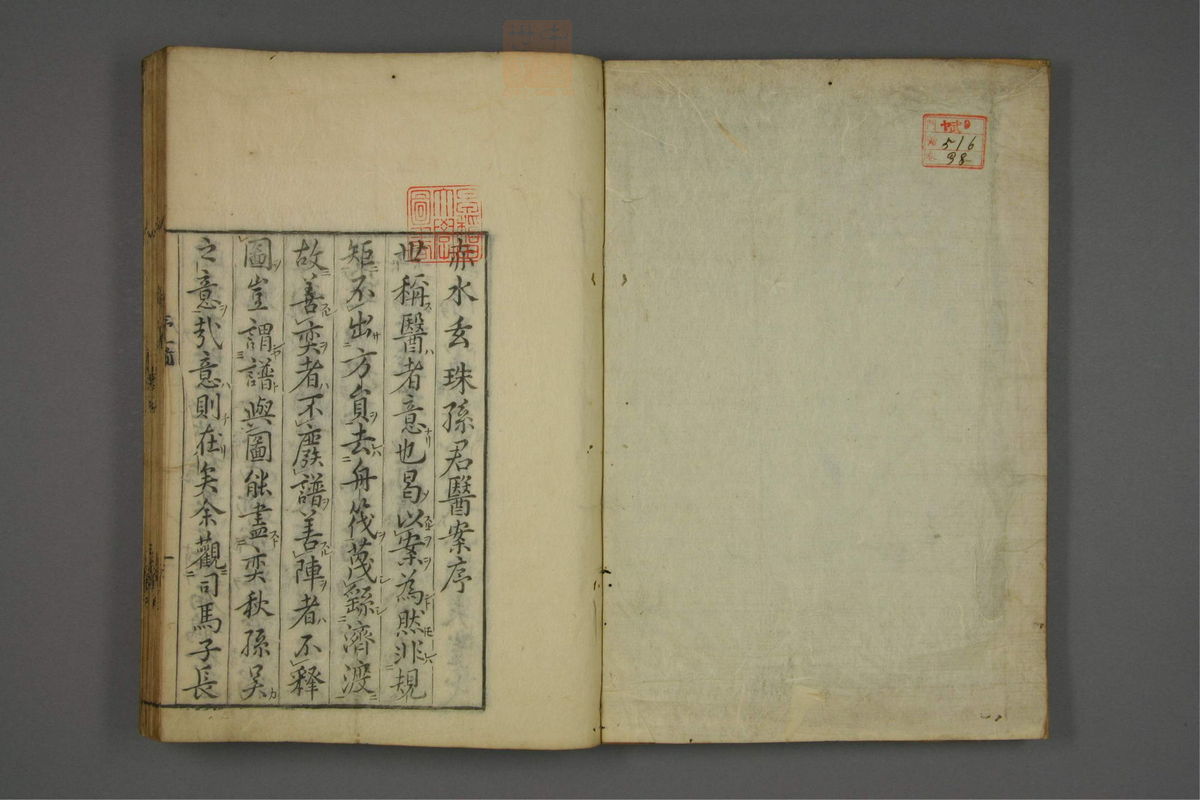 516
98
赤水玄珠孫君醫案序
世稱醫者意也曷以案為然非規
矩不出方負去舟筏茂繇濟渡
故善奕者不廢譜善陣者不釋
圖豈謂譜與圖能盡奕秋孫吳
之意㢤意則在矣余觀司馬子長